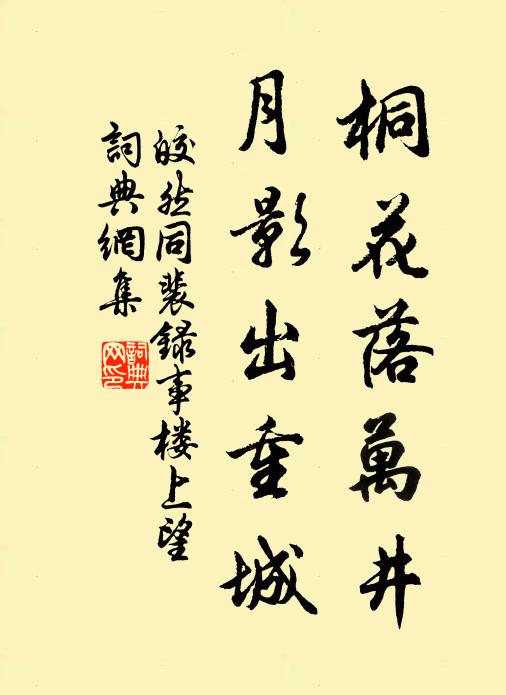 桐花落萬井
月影出重城
皎然同裴錄事楼上望
詞典網集
詞典
网印